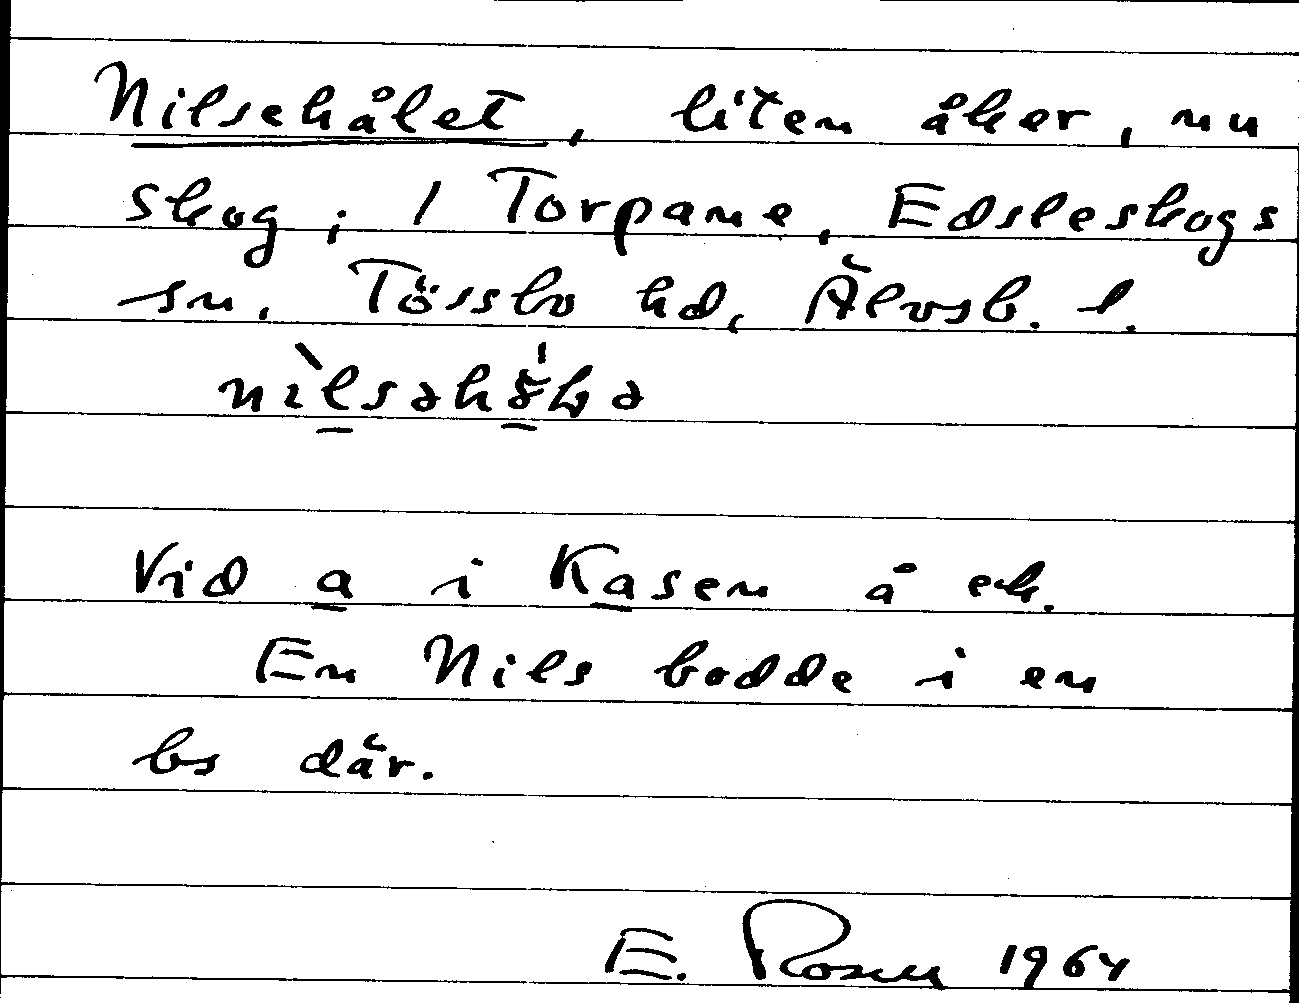 Nilsehålet, liten åker, nu
skog; 1 Torpane, Edsleskogs
sn. Tössbo hd, Älvsb. l.
Vid a i Kasen å ek.
En Nils bodde i en
bs där.
E. Rosen 1964